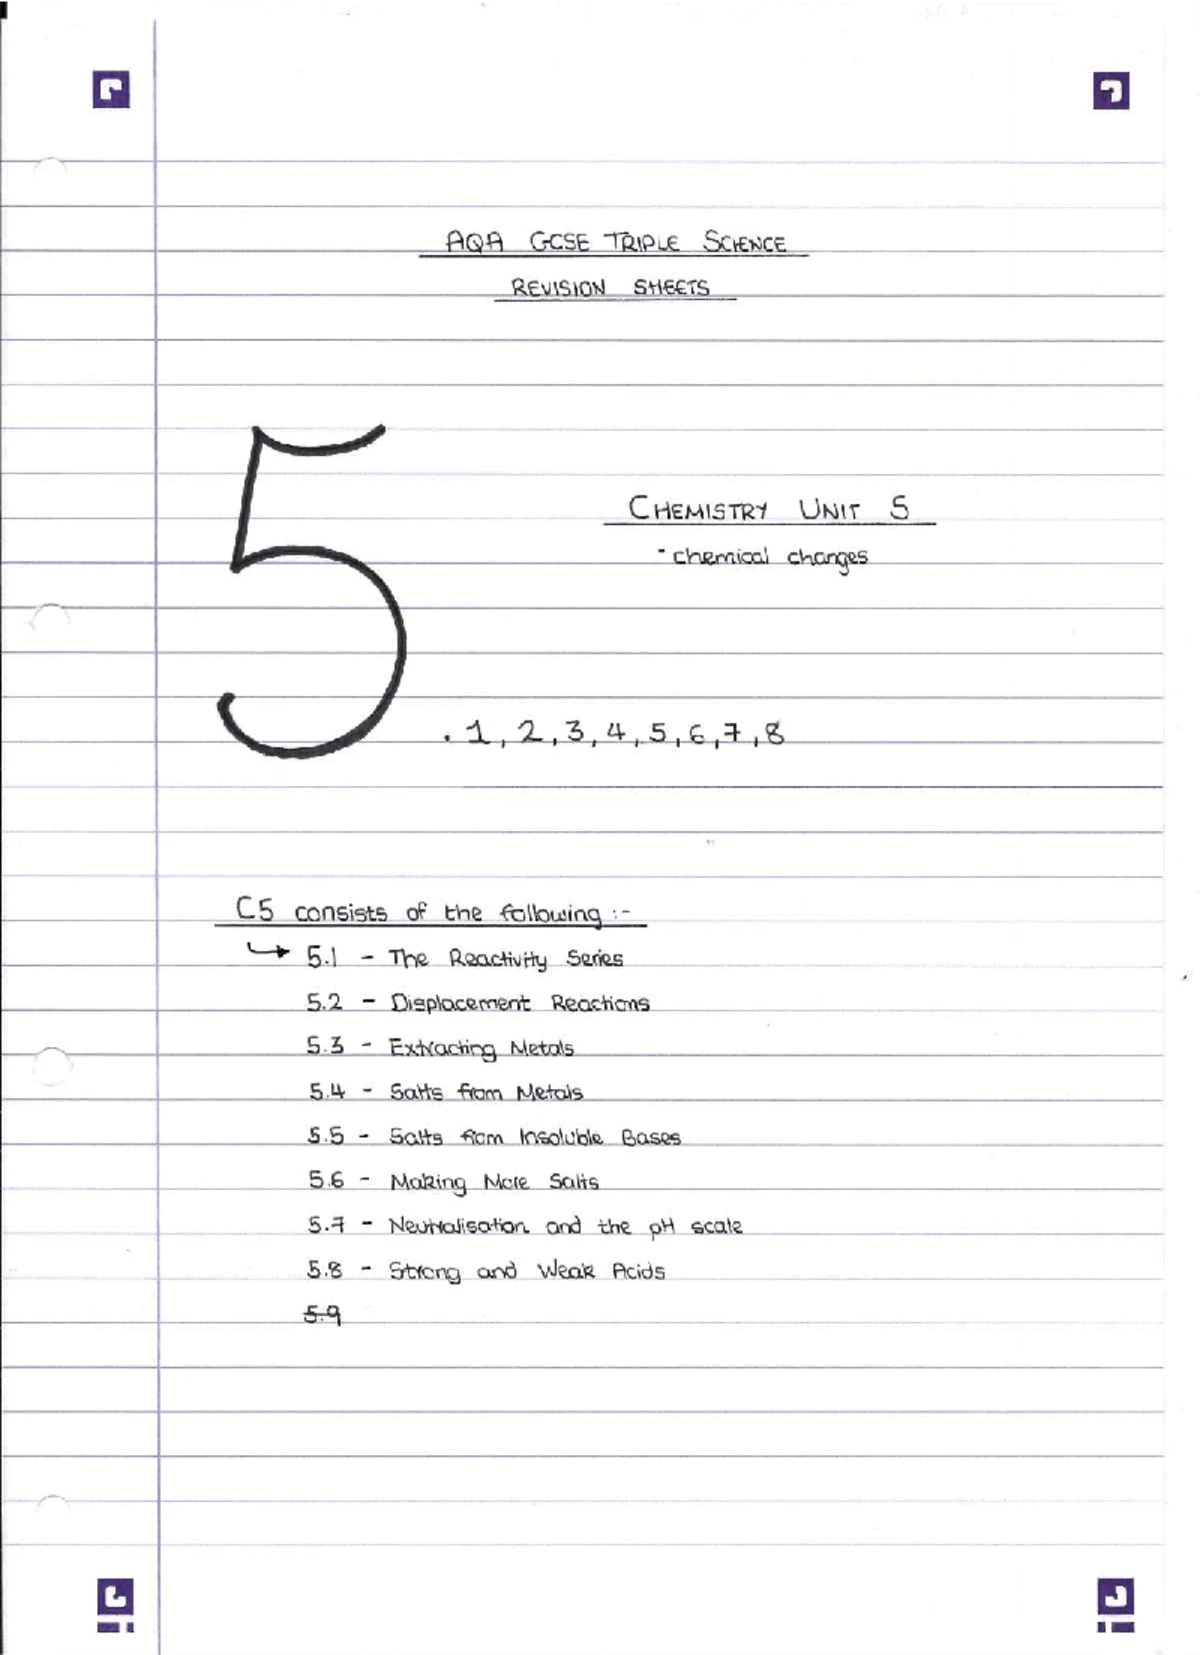 AQA GCSE TRIPLE SCIENCE
REVISION SHEETS
5
CHEMISTRY UNIT 5
- chemical changes
. 1, 2, 3, 4, 5, 6, 7, 8
C5 consists of the following :-
↳ 5.1 - The Reactivity Series
5.2 - Displacement Reactions
5.3 - Extracting Metals
5.4 - Salts from Metals
5.5 - Salts from Insoluble Bases
5.6 - Making More Salts
5.7 - Neutralisation and the pH scale
5.8 - Strong and Weak Acids
5.9